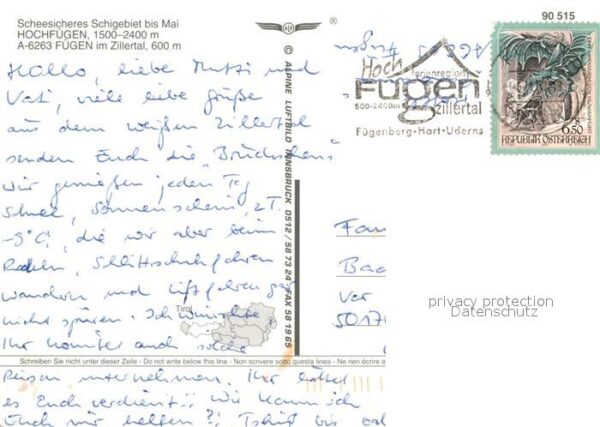 Scheesicheres Schigebiet bis Mai
HOCHFÜGEN, 1500–2400 m
A-6263 FÜGEN im Zillertal, 600 m
90 515
© ALPINE LUFTBILD INNSBRUCK 0512/58 73 24 FAX 58 19 65
Hoch
Ferienregion
Fügen
500-2400m
Zillertal
Fügenberg·Hart·Uderns
6.50
REPUBLIK ÖSTERREICH
Hallo, liebe Mutti und
Vati, viele liebe Grüße
aus dem weißen Zillertal
senden Euch die
Wir genießen jeden Tag
Schnee, Sonnenschein, z.T.
-5°C, die wir aber beim
Rodeln, Schlittschuhfahren
wandern und Liftfahren gar
nicht spüren. Ich wünschte,
Ihr könntet auch solche
Reisen unternehmen. Ihr hättet
es Euch verdient!! Wie kann ich
Euch nur helfen?! Tschüß bis
Tirol
Fam
Ba
5017
privacy protection
Datenschutz
Schreiben Sie nicht unter dieser Zeile - Do not write below this line - Non scrivere sotto questa linea - Ne rien écrire a